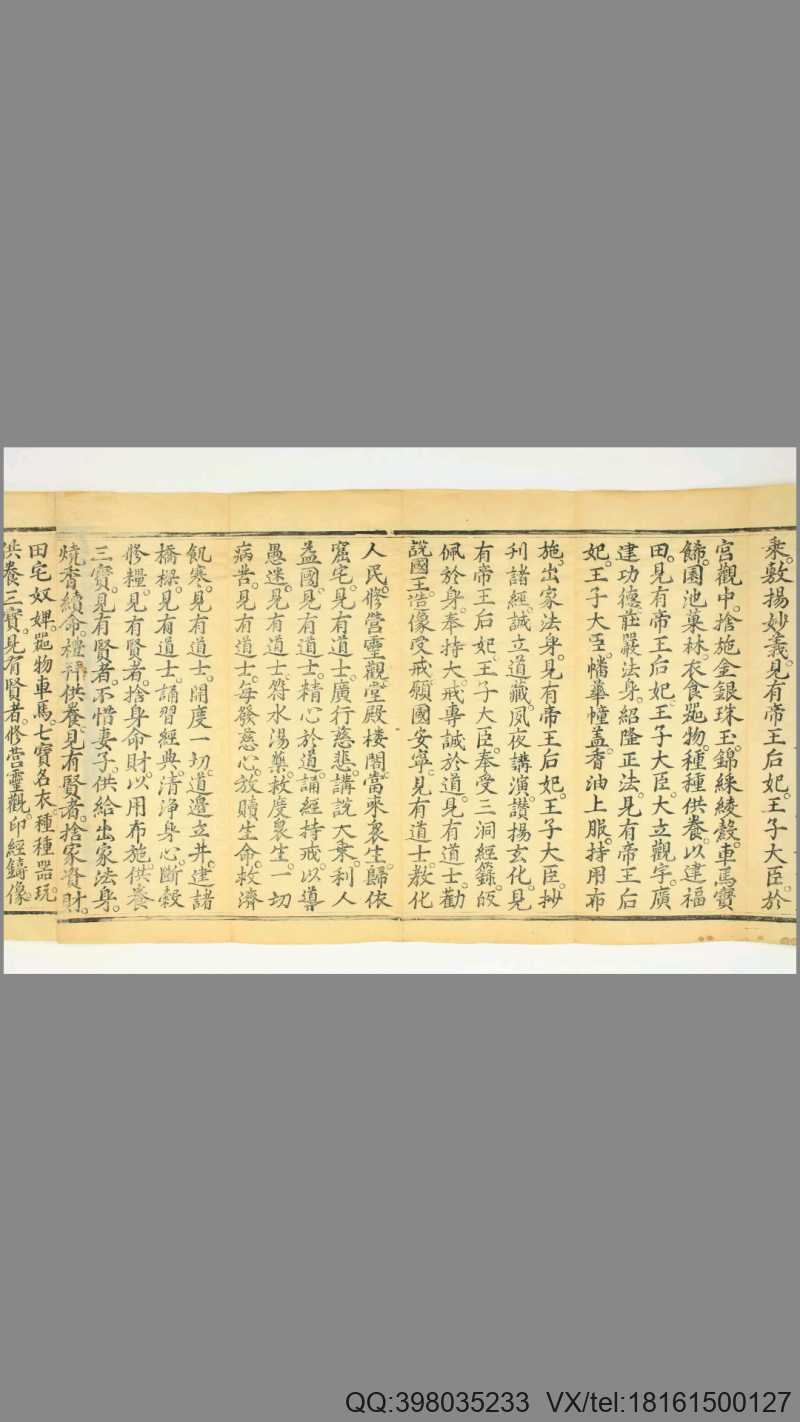 乘。敷揚妙義。見有帝王后妃。王子大臣。於
宮觀中。捨施金銀珠玉。錦綵綾縠。車馬寶
飾。園池菓林。衣食噐物。種種供養。以建福
田。見有帝王后妃。王子大臣。大立觀宇。廣
建功德。莊嚴法身。紹隆正法。見有帝王后
妃。王子大臣。幡華幢蓋。香油上服。持用布
施。出家法身。見有帝王后妃。王子大臣。抄
利諸經。誠立道藏。夙夜講演。讚揚玄化。見
有帝王后妃。王子大臣。奉受三洞經籙。皈
佩於身。奉持大戒。專誠於道。見有道士。勸
說國王。造像受戒。願國安寧。見有道士。教化
人民。修營靈觀。堂殿樓閣。當來衆生。歸依
窟宅。見有道士。廣行慈悲。講說大乘。利人
益國。見有道士。精心於道。誦經持戒。以導
愚迷。見有道士。符水湯藥。救度衆生。一切
病苦。見有道士。每發慈心。放贖生命。救濟
飢寒。見有道士。開度一切。道邊立井。建諸
橋樑。見有道士。誦習經典。清淨身心。斷穀
修糧。見有賢者。捨身命財。以用布施。供養
三寶。見有賢者。不惜妻子。供給出家法身。
燒香續命。種種供養。見有賢者。捨家資財。
田宅奴婢。噐物車馬。七寶名衣。種種器玩
供養三寶。見有賢者。修營靈觀。印經鑄像。
QQ:398035233 VX/tel:18161500127